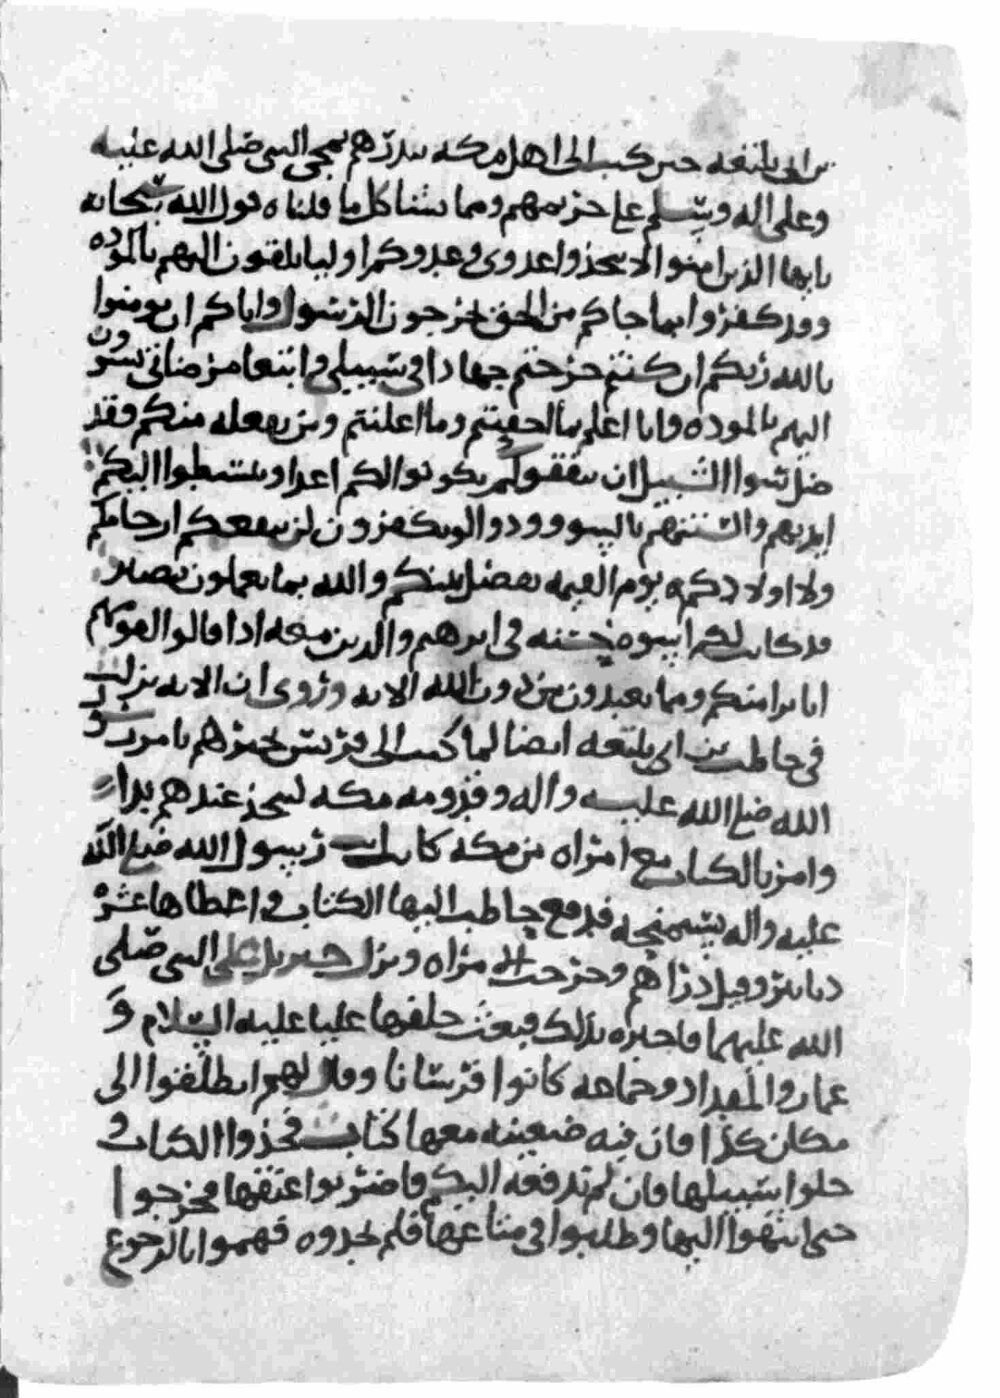 بن ابي بلتعه حين كتب الى اهل مكه ينذرهم بمجي النبي صلى الله عليه
وعلى اله وسلم على حربهم ومما يشاكل ما قلناه قول الله سبحانه
يايها الذين امنوا لا تتخذوا عدوي وعدوكم اوليا تلقون اليهم بالموده
وقد كفروا بما جاكم من الحق يخرجون الرسول واياكم ان تومنوا
بالله ربكم ان كنتم خرجتم جهادا في سبيلي وابتغا مرضاتي تسرون
اليهم بالموده وانا اعلم بما اخفيتم وما اعلنتم ومن يفعله منكم فقد
ضل سوا السبيل ان يثقفوكم يكونوا لكم اعدا ويبسطوا اليكم
ايديهم والسنتهم بالسوو وودوا لو تكفرون لن تنفعكم ارحامكم
ولا اولادكم يوم القيمه يفصل بينكم والله بما تعملون بصير
قد كانت لكم اسوه حسنه في ابرهيم والذين معه اذ قالوا لقومهم
انا برا منكم ومما تعبدون من دون الله الايه وروي ان الايه نزلت
في حاطب بن ابي بلتعه ايضا لما كتب الى قريش يخبرهم بامر رسول
الله صلى الله عليه واله وقدومه مكه ليتخذ عندهم يدا
وامر بالكتاب مع امراه من مكه كانت رسول الله صلى الله
عليه واله فدفع حاطب اليها الكتاب واعطاها عشره
دنانير وقيل دراهم وخرجت الامراه ونزل جبريل على النبي صلى
الله عليهما فاخبره بذلك فبعث خلفها عليا عليه السلام و
عمار والمقداد وجماعه كانوا فرسانا وقال لهم انطلقوا الى
مكان كذا فان فيه ضعينه معها كتاب فخذوا الكتاب و
خلوا سبيلها فان لم تدفعه اليكم فاضربوا عنقها فخرجوا
حتى انتهوا اليها وطلبوا في متاعها فلم يجدوه فهموا بالرجوع